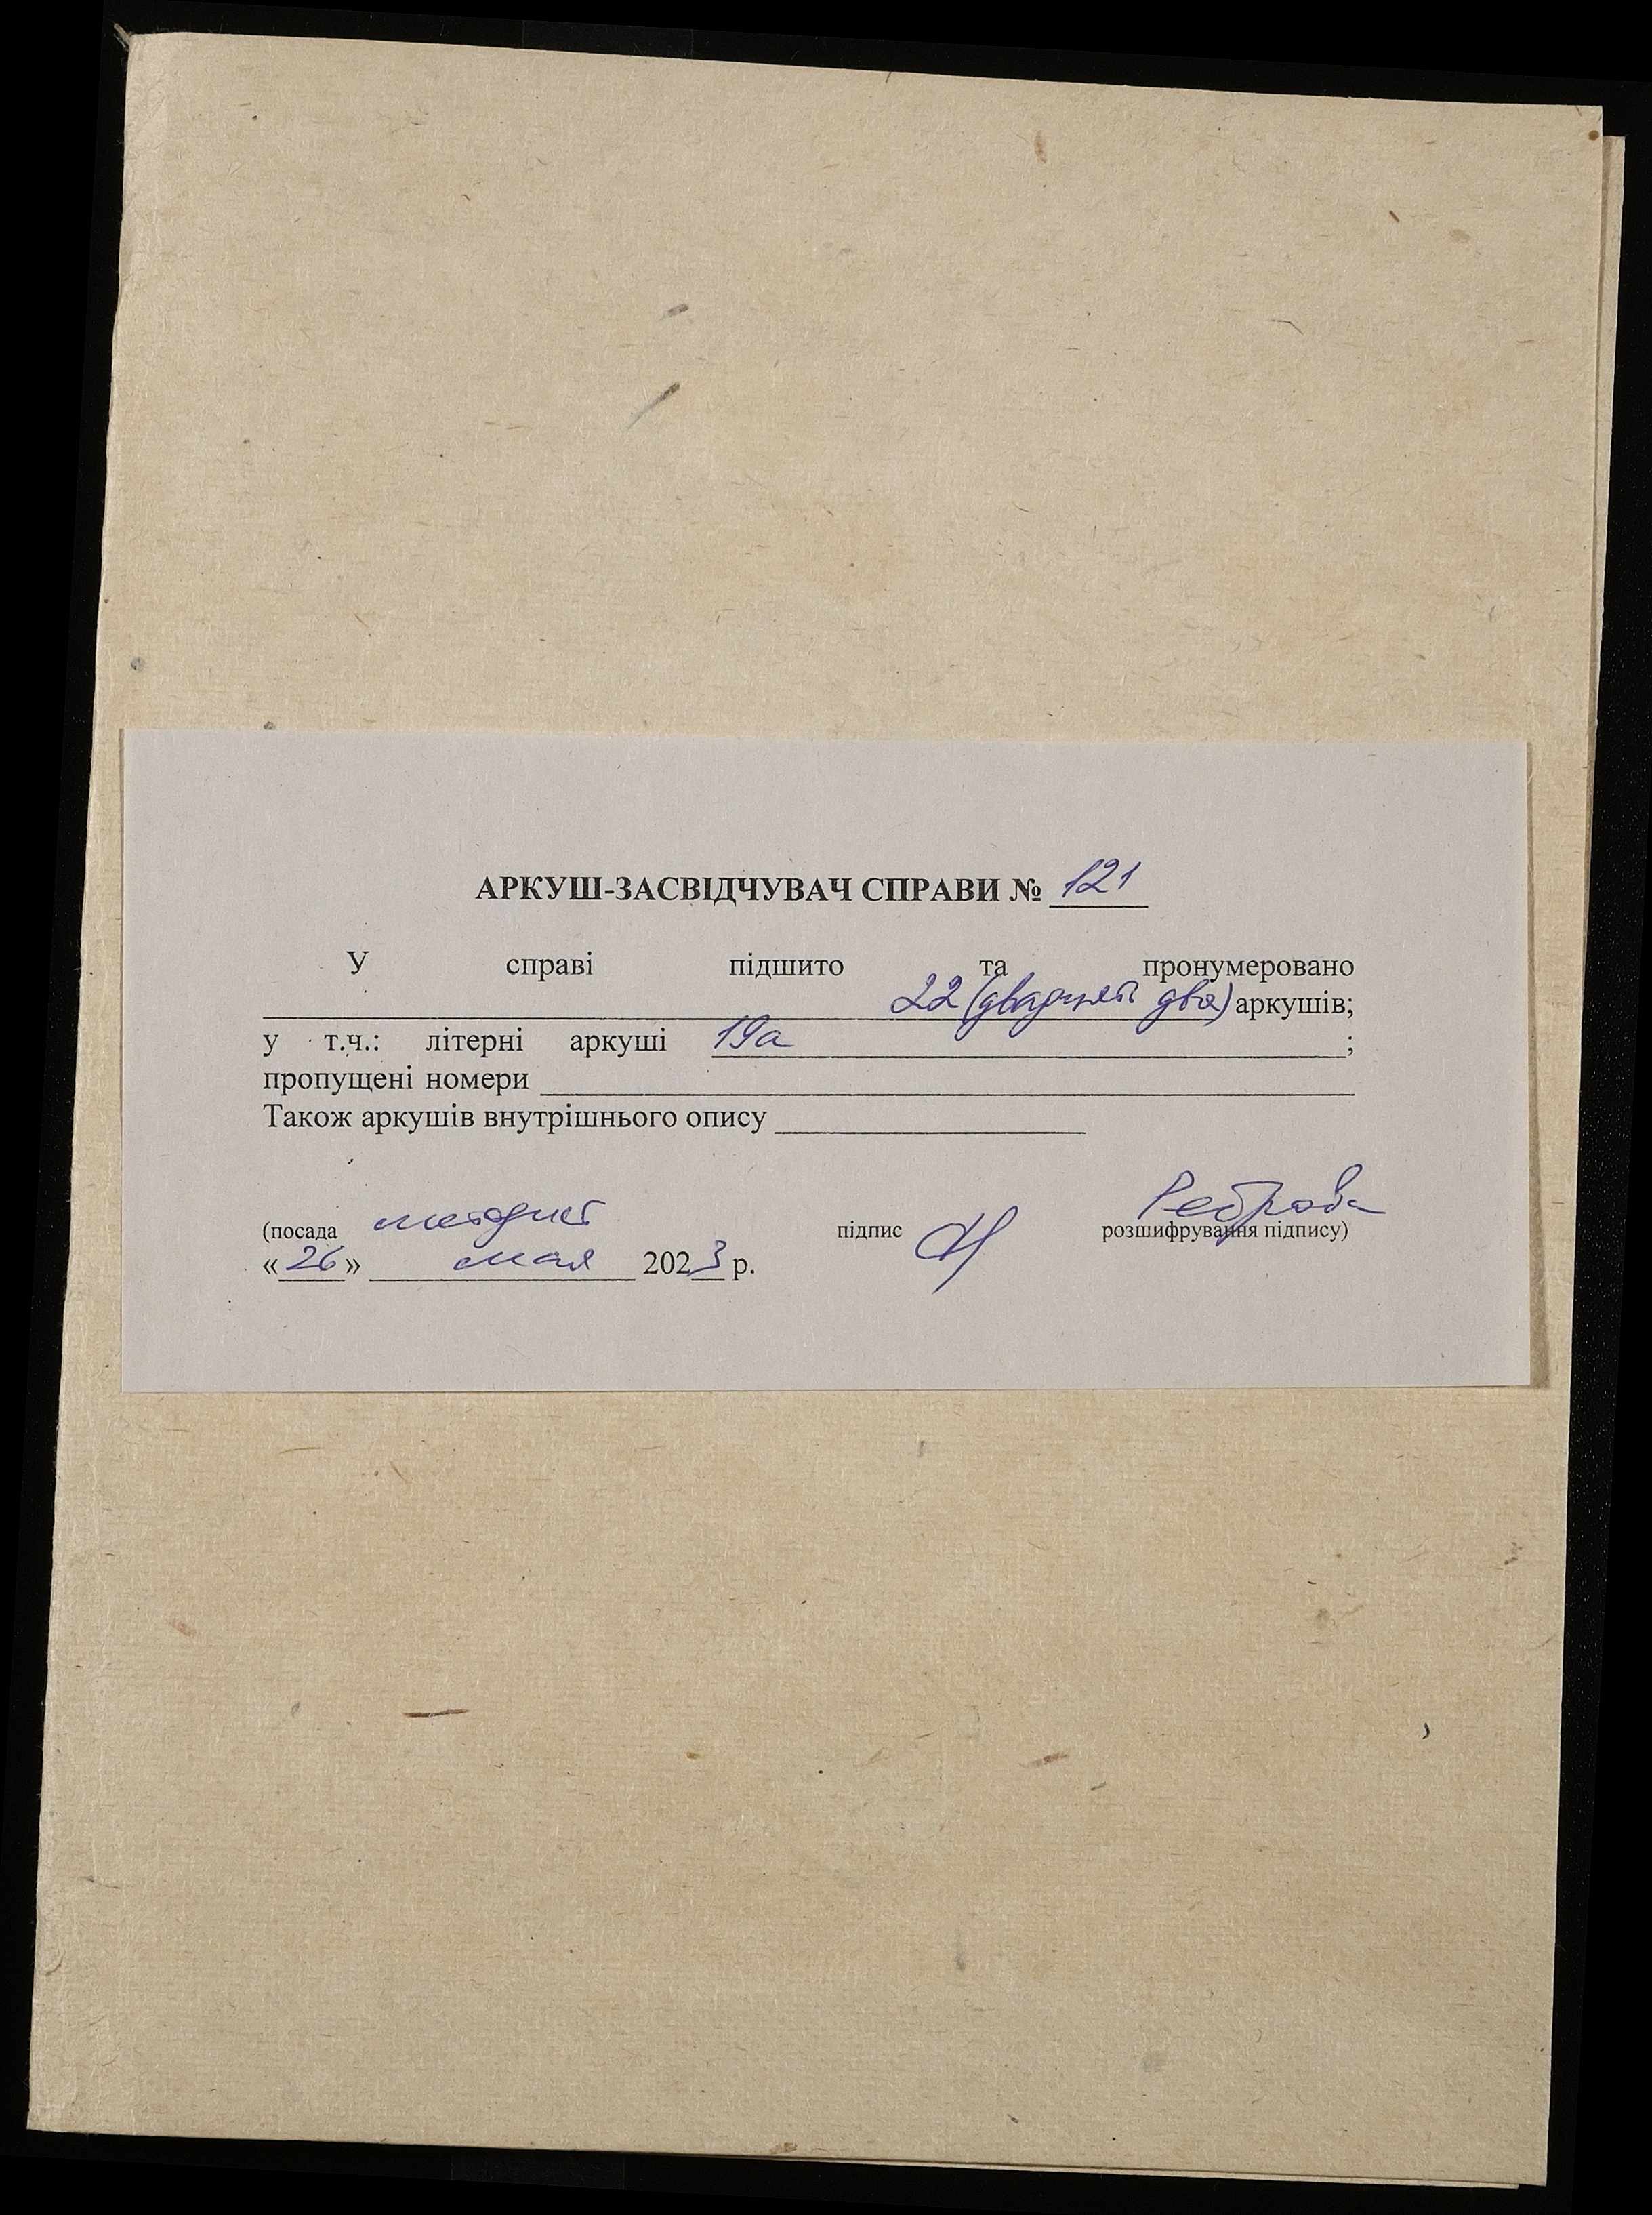 АРКУШ-ЗАСВІДЧУВАЧ СПРАВИ № 121
У справі підшито та пронумеровано
22 (двадцять два) аркушів;
у т.ч.: літерні аркуші 19а ;
пропущені номери
Також аркушів внутрішнього опису
(посада методист підпис Реброва розшифрування підпису)
«26» мая 2023 р.